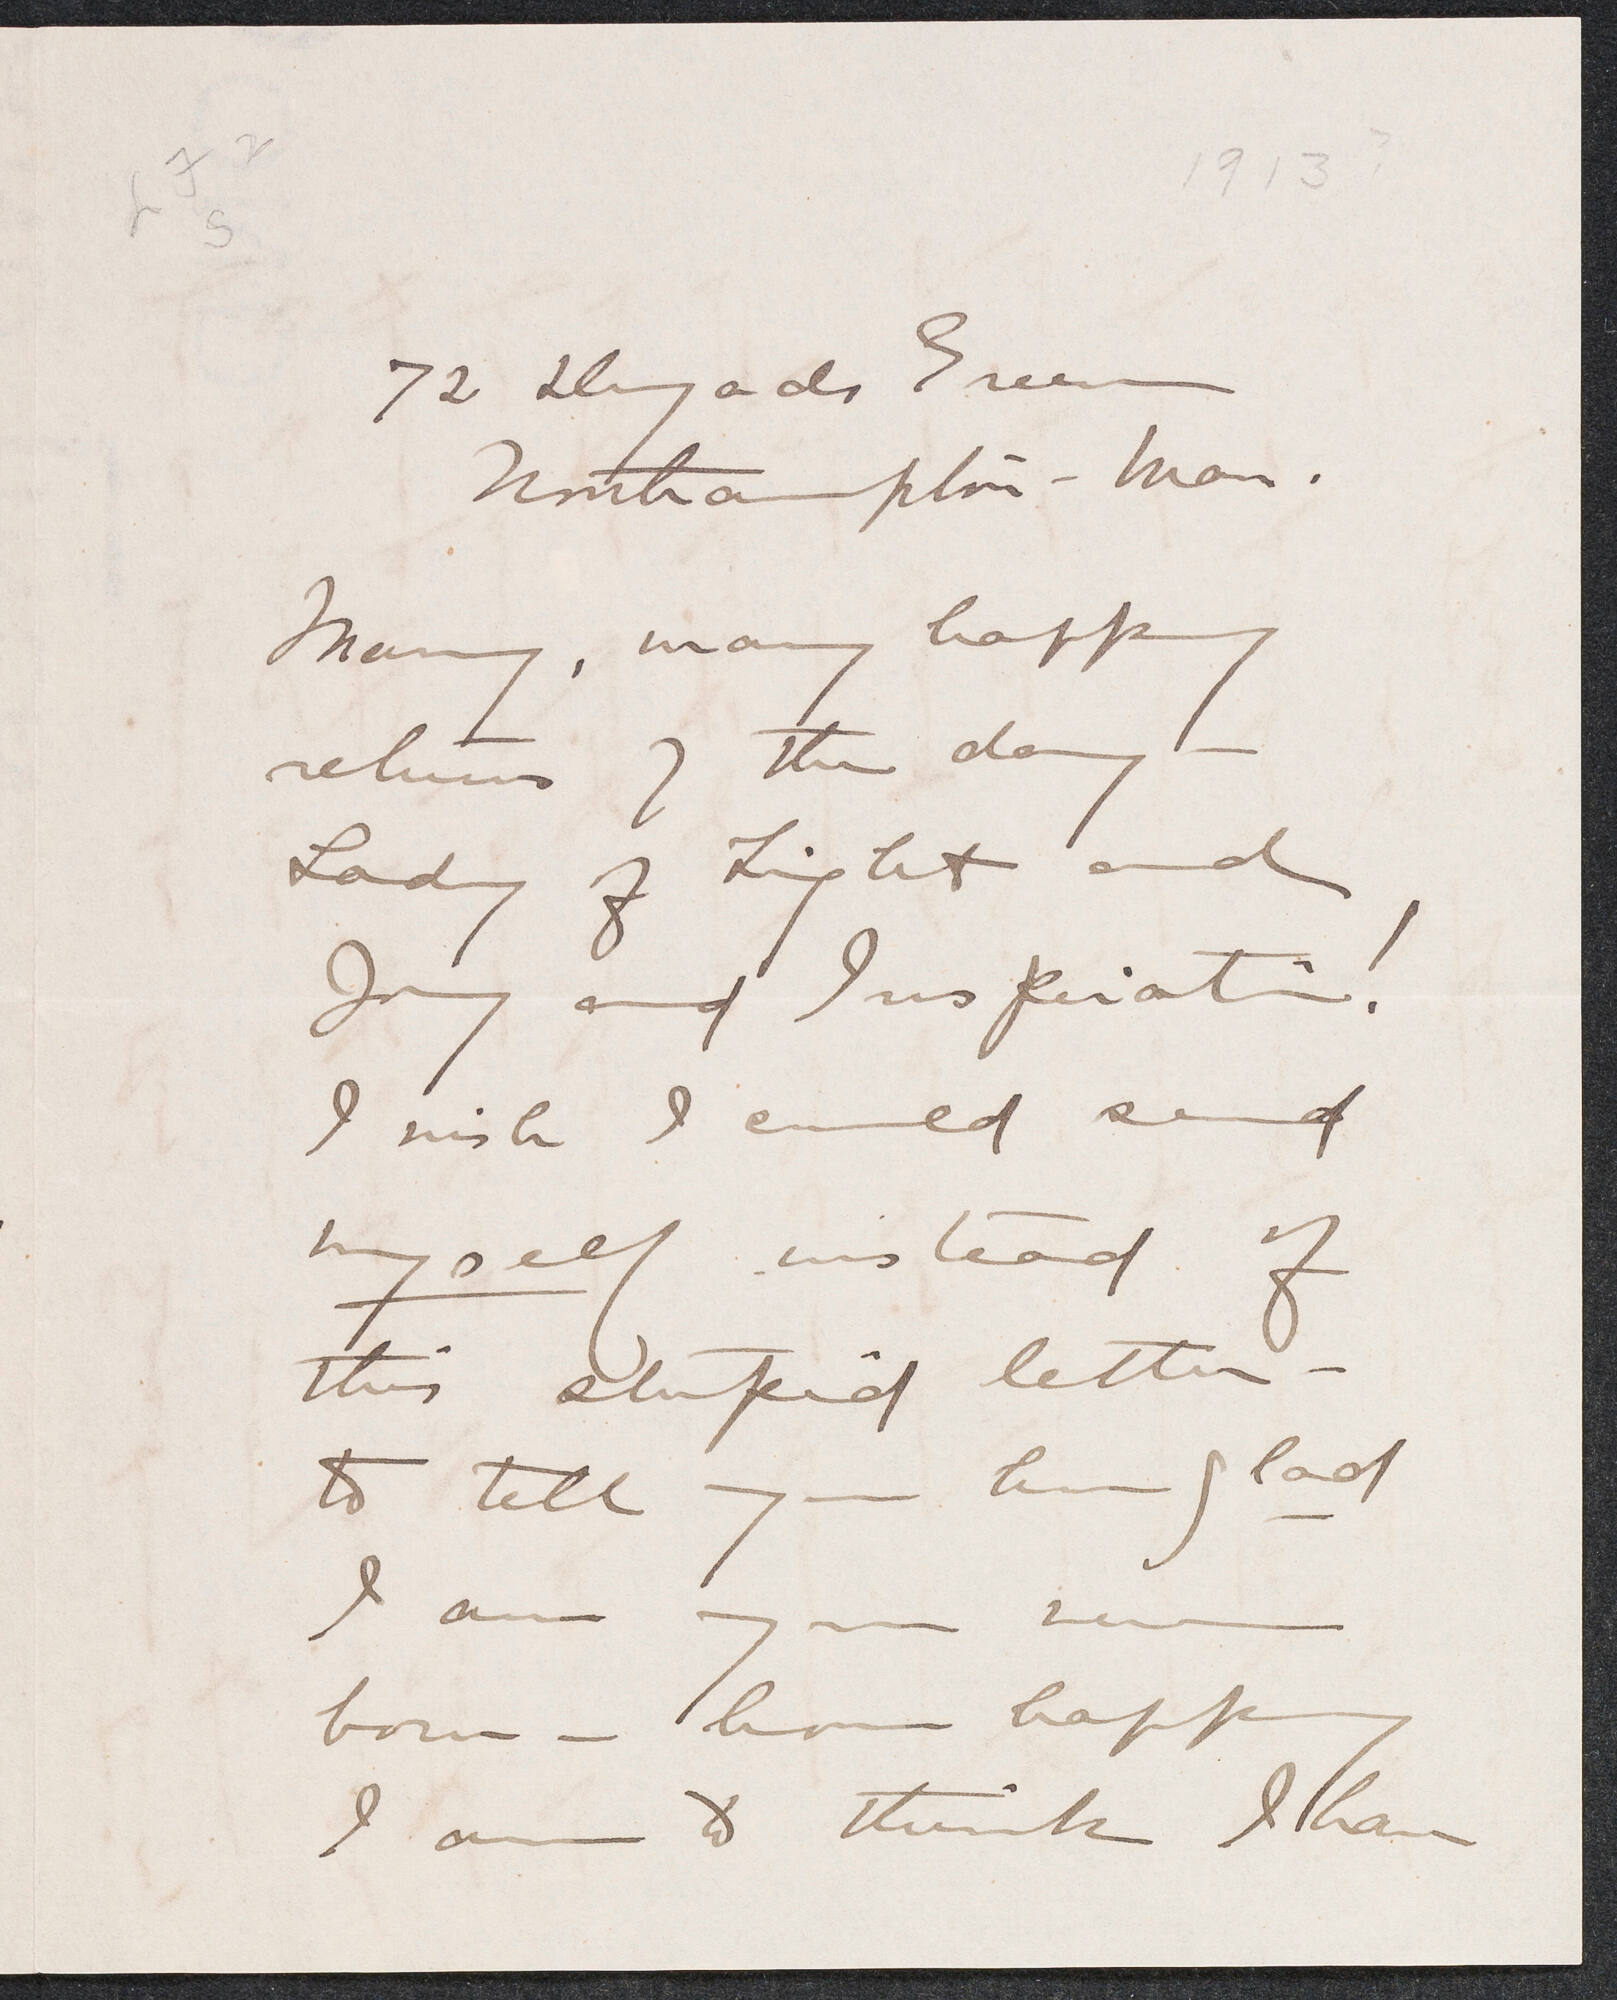 1913?
72 Dryads Green
Northampton - Mass.
Many, many happy
returns of the day -
Lady of Light and
Joy and Inspiration!
I wish I could send
myself instead of
this stupid letter -
to tell you how glad
I am you were
born - how happy
I am to think I have